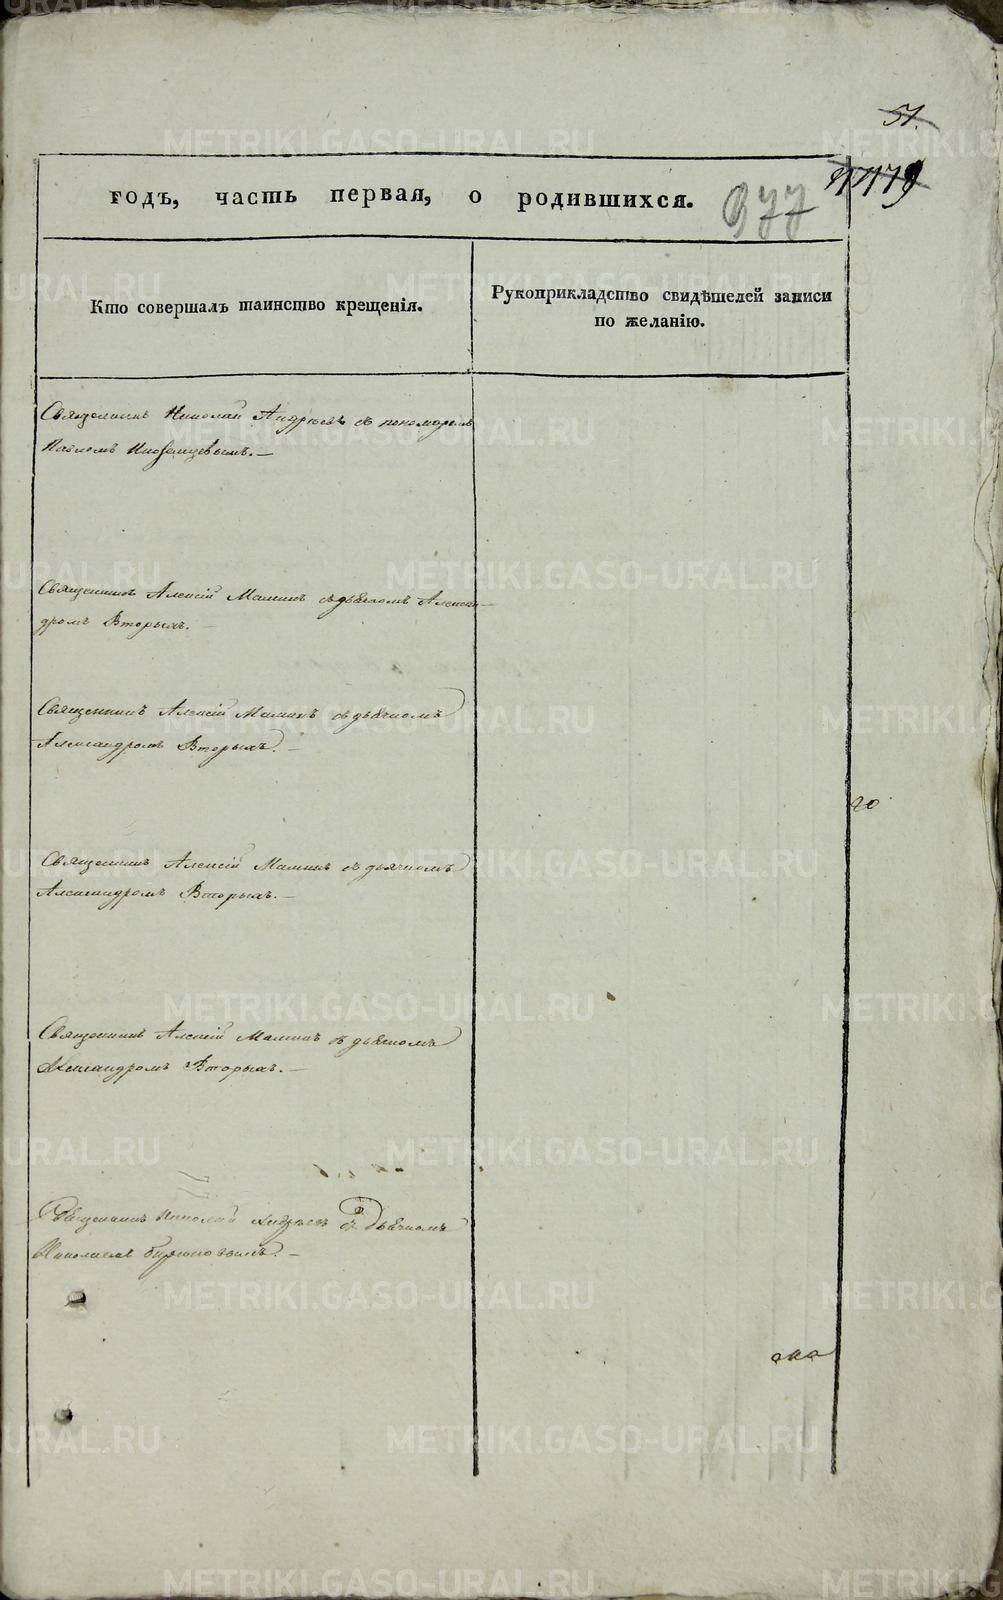 51.
1179
377
годъ, часть первая, о родившихся.
Кто совершалъ таинство крещенія.
Рукоприкладство свидѣтелей записи
по желанію.
Священникъ Николай Андреевъ съ пономаремъ
Павломъ Иноземцевымъ.—
Священникъ Алексій Маминъ съ дьячкомъ Алексан-
дромъ Вторыхъ.—
Священникъ Алексій Маминъ съ дьячкомъ
Александромъ Вторыхъ.—
Священникъ Алексій Маминъ съ дьячкомъ
Александромъ Вторыхъ.—
Священникъ Алексій Маминъ съ дьячкомъ
Александромъ Вторыхъ.—
Священникъ Николай Андреевъ съ Дьячкомъ
METRIKI.GASO-URAL.RU